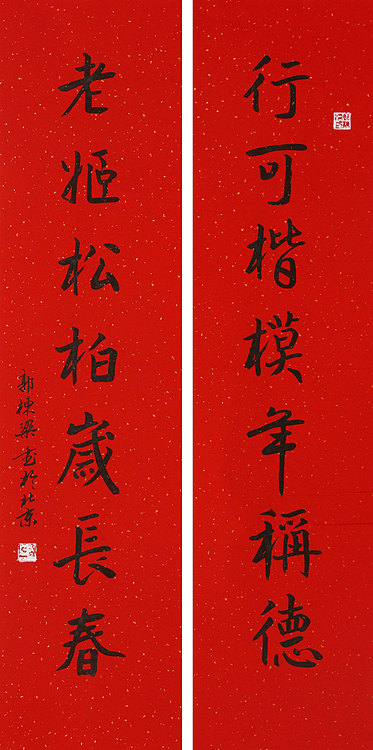 行可楷模年稱德
老姬松柏歲長春
郭栋梁书於北京